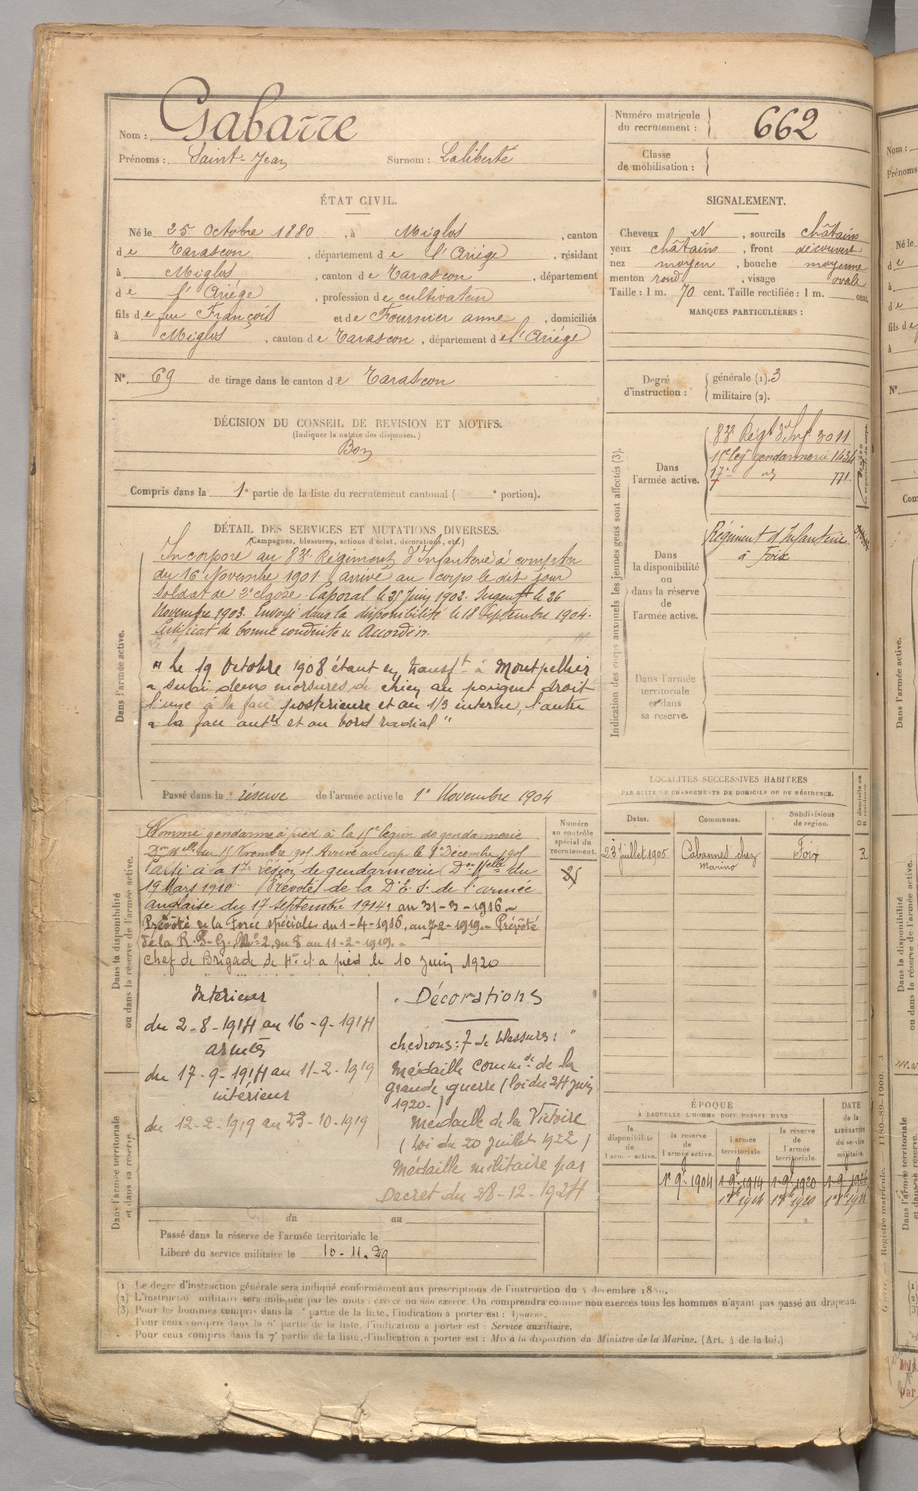 Nom : Gabarre
Prénoms : Saint-Jean Surnom : Laliberté
Numéro matricule du recrutement : 662
Classe de mobilisation :
ÉTAT CIVIL.
Né le 25 Octobre 1880, à Miglos, canton
de Tarascon, département de l'Ariège, résidant
à Miglos, canton de Tarascon, département
de l'Ariège, profession de cultivateur
fils de feu François et de Fournier anne, domiciliés
à Miglos, canton de Tarascon, département de l'Ariège
N° 69 de tirage dans le canton de Tarascon
SIGNALEMENT.
Cheveux N, sourcils châtains
yeux châtains, front découvert
nez moyen, bouche moyenne
menton rond, visage ovale
Taille : 1 m. 70 cent. Taille rectifiée : 1 m. cent.
MARQUES PARTICULIÈRES :
Degré d'instruction : générale (1). 3
militaire (2).
DÉCISION DU CONSEIL DE REVISION ET MOTIFS.
(Indiquer la nature des dispenses.)
Bon
Compris dans la 1e partie de la liste du recrutement cantonal ( e portion).
DÉTAIL DES SERVICES ET MUTATIONS DIVERSES.
(Campagnes, blessures, actions d'éclat, décorations, etc.)
Dans l'armée active.
Incorporé au 83e Régiment d'Infanterie à compter
du 16 Novembre 1901 arrivé au corps le dit jour
soldat de 2e classe. Caporal le 25 Juin 1902. Sergent le 26
Novembre 1903. Envoyé dans la disponibilité le 18 Septembre 1904.
Certificat de bonne conduite "Accordé".
" Le 19 Octobre 1908 étant en transft à Montpellier
a subi deux morsures de chien au poignet droit
l'une à la face postérieure et au 1/3 interne, l'autre
à la face antre et au bord radial "
Passé dans la réserve de l'armée active le 1er Novembre 1904
Indication des corps auxquels les jeunes gens sont affectés (3).
Dans l'armée active.
83e Régt d'Inf. 3011
15e leg gendarmerie 1434
17e 771
Dans la disponibilité ou dans la réserve de l'armée active.
Régiment d'Infanterie
à Foix
Dans l'armée territoriale et dans sa réserve.
LOCALITÉS SUCCESSIVES HABITÉES
PAR SUITE DE CHANGEMENTS DE DOMICILE OU DE RÉSIDENCE.
Dates. Communes. Subdivisions de région.
23 juillet 1905 Cabannes chez Marino Foix R
Dans la disponibilité ou dans la réserve de l'armée active.
Numéro au contrôle spécial du recrutement.
Nommé gendarme à pied à la 15e légion de gendarmerie
Don Mlle du 15 Novembre 1905 Arrivé au corps le 1er Décembre 1905
Passé à la 17e légion de gendarmerie Don Mlle du
19 Mars 1910 Prévôté de la D. E. S. de l'armée
anglaise du 17 Septembre 1914 au 31-3-1916
Prévôté de la Force spéciales du 1-4-1916, au 7-2-1919. Prévôté
de la R. G. No 2, du 8 au 11-2-1919.
Chef de Brigade de 4e cl. à pied le 10 juin 1920
Intérieur
du 2-8-1914 au 16-9-1914
armées
du 17-9-1914 au 11-2-1919
intérieur
du 12-2-1919 au 23-10-1919
Décorations
chevrons : 7 de blessures : "
Médaille commve de la
grande guerre (loi du 24 juin
1920-)
Médaille de la Victoire
(loi du 20 juillet 1922)
Médaille militaire par
Décret du 28-12-1924
Dans l'armée territoriale et dans sa réserve.
du au
Passé dans la réserve de l'armée territoriale le
Libéré du service militaire le 10-11-29
ÉPOQUE
À LAQUELLE L'HOMME DOIT PASSER DANS
la disponibilité de l'armée active.
la réserve de l'armée active.
l'armée territoriale.
la réserve de l'armée territoriale.
DATE de la LIBÉRATION du service militaire.
1er 9bre 1904
(1) Le degré d'instruction générale sera indiqué conformément aux prescriptions de l'instruction du 4 décembre 1889.
(2) L'instruction militaire sera indiquée par les mots : exercé ou non exercé. On comprendra comme non exercés tous les hommes n'ayant pas passé au drapeau.
(3) Pour les hommes compris dans la partie de la liste, l'indication à porter est :
Pour ceux compris dans la 6e partie de la liste, l'indication à porter est : Service auxiliaire.
Pour ceux compris dans la 7e partie de la liste, l'indication à porter est : Mis à la disposition du Ministre de la Marine. (Art. 4 de la loi.)